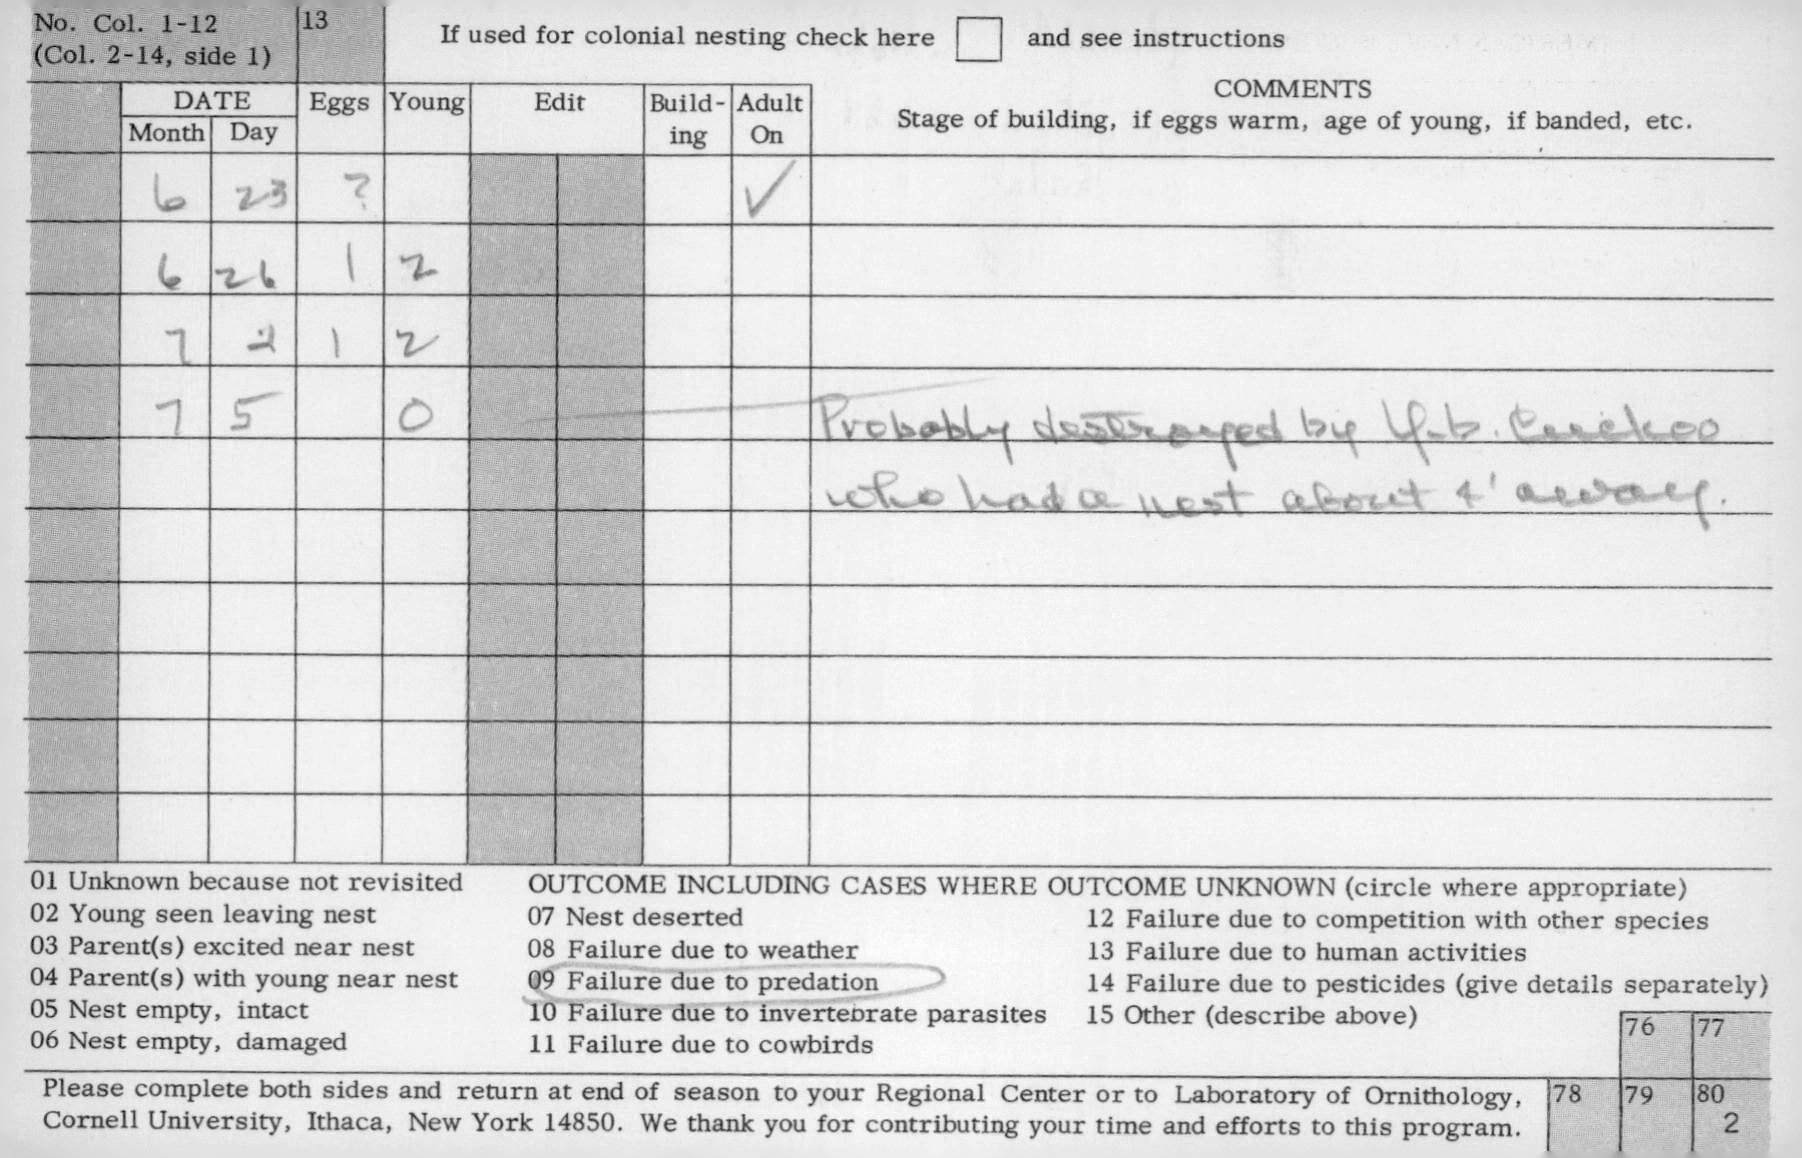 No. Col. 1-12
(Col. 2-14, side 1)
13
If used for colonial nesting check here and see instructions
DATE
Month Day
Eggs
Young
Edit
Build-
ing
Adult
On
COMMENTS
Stage of building, if eggs warm, age of young, if banded, etc.
6 23 ? ✓
6 26 1 2
7 2 1 2
7 5 0 Probably destroyed by Y-b. Cuckoo
who had a nest about 4' away.
01 Unknown because not revisited
02 Young seen leaving nest
03 Parent(s) excited near nest
04 Parent(s) with young near nest
05 Nest empty, intact
06 Nest empty, damaged
OUTCOME INCLUDING CASES WHERE OUTCOME UNKNOWN (circle where appropriate)
07 Nest deserted
08 Failure due to weather
09 Failure due to predation
10 Failure due to invertebrate parasites
11 Failure due to cowbirds
12 Failure due to competition with other species
13 Failure due to human activities
14 Failure due to pesticides (give details separately)
15 Other (describe above)
76 77
Please complete both sides and return at end of season to your Regional Center or to Laboratory of Ornithology,
Cornell University, Ithaca, New York 14850. We thank you for contributing your time and efforts to this program.
78 79 80
2